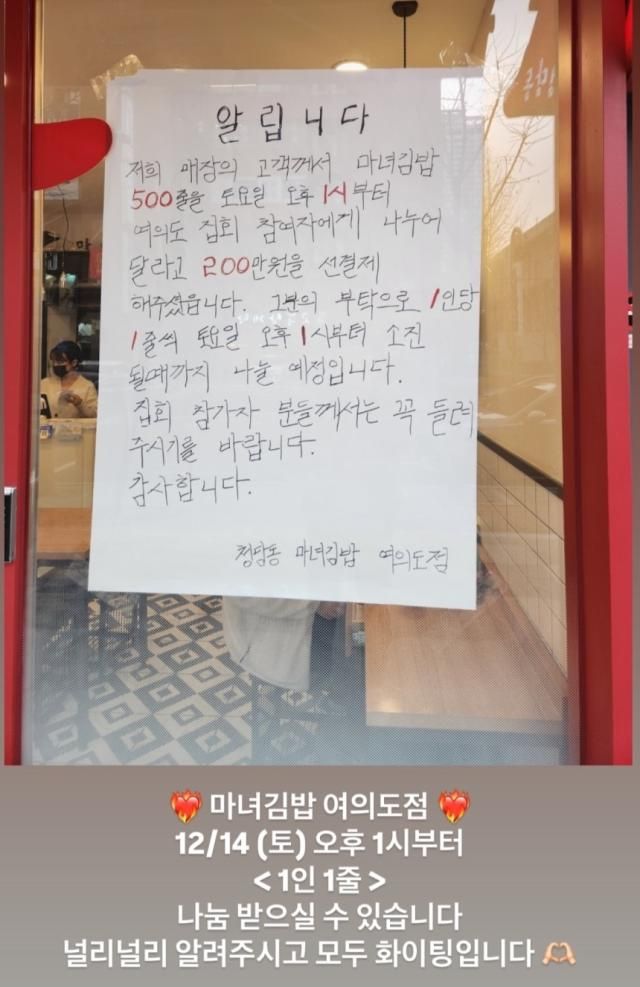 알립니다
저희 매장의 고객께서 마녀김밥
500줄을 토요일 오후 1시부터
여의도 집회 참여자에게 나누어
달라고 200만원을 선결제
해주셨읍니다. 그분의 부탁으로 1인당
1줄씩 토요일 오후 1시부터 소진
될때까지 나눌 예정입니다.
집회 참가자 분들께서는 꼭 들려
주시기를 바랍니다.
감사합니다.
청담동 마녀김밥 여의도점
❤️‍🔥 마녀김밥 여의도점 ❤️‍🔥
12/14 (토) 오후 1시부터
< 1인 1줄 >
나눔 받으실 수 있습니다
널리널리 알려주시고 모두 화이팅입니다 🫶🏻